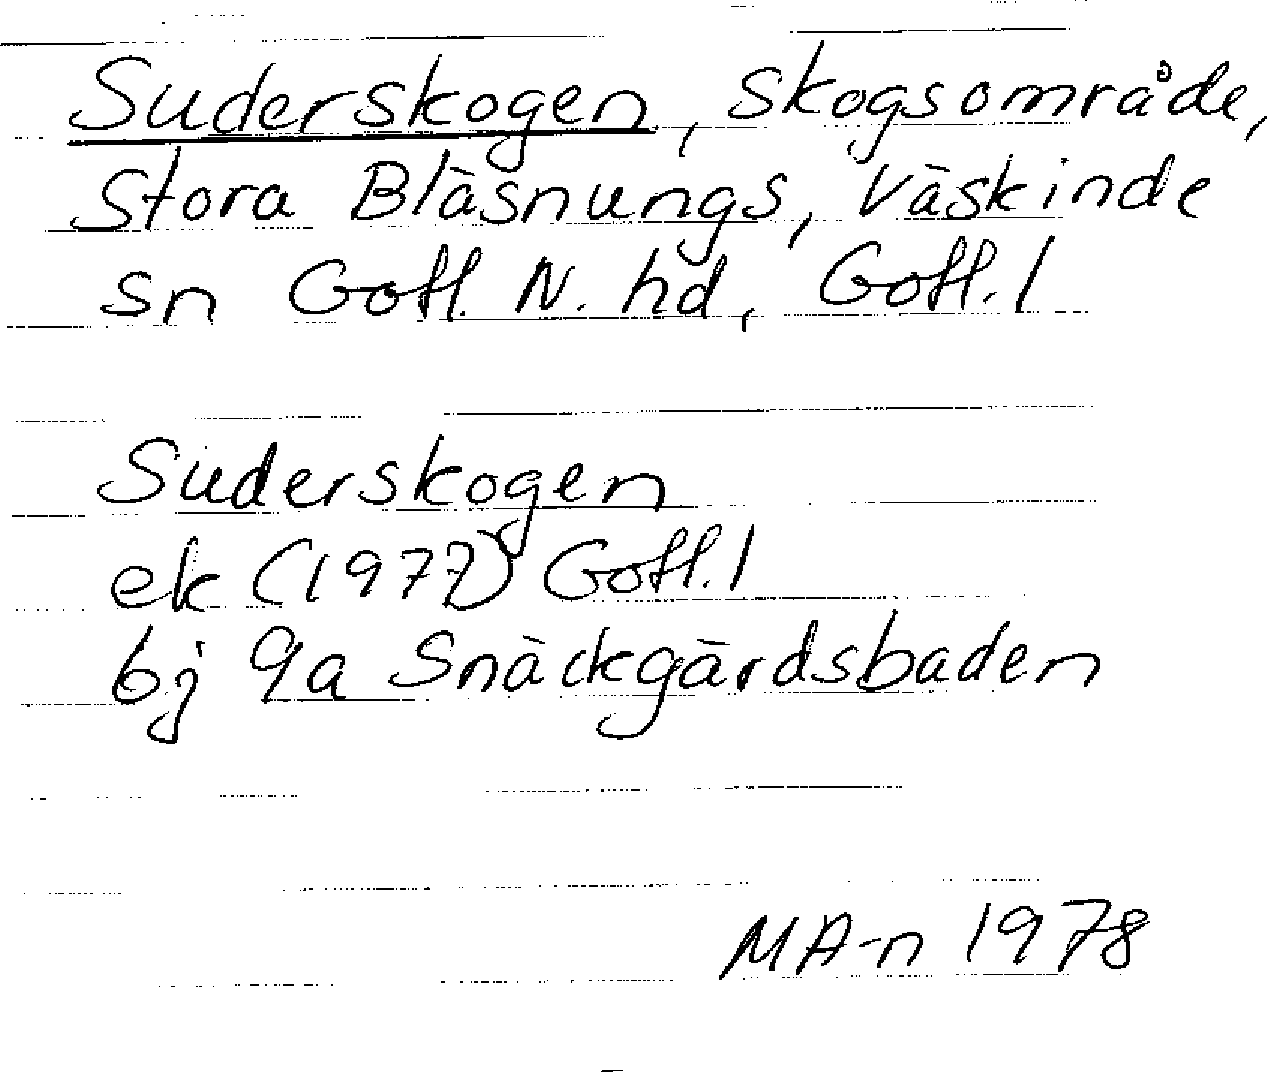 Suderskogen, skogsområde,
Stora Bläsnungs, Väskinde
sn Gotl. N. hd, Gotl. l
Suderskogen
ek (1977) Gotl. l
bj 9a Snäckgärdsbaden
MA-n 1978